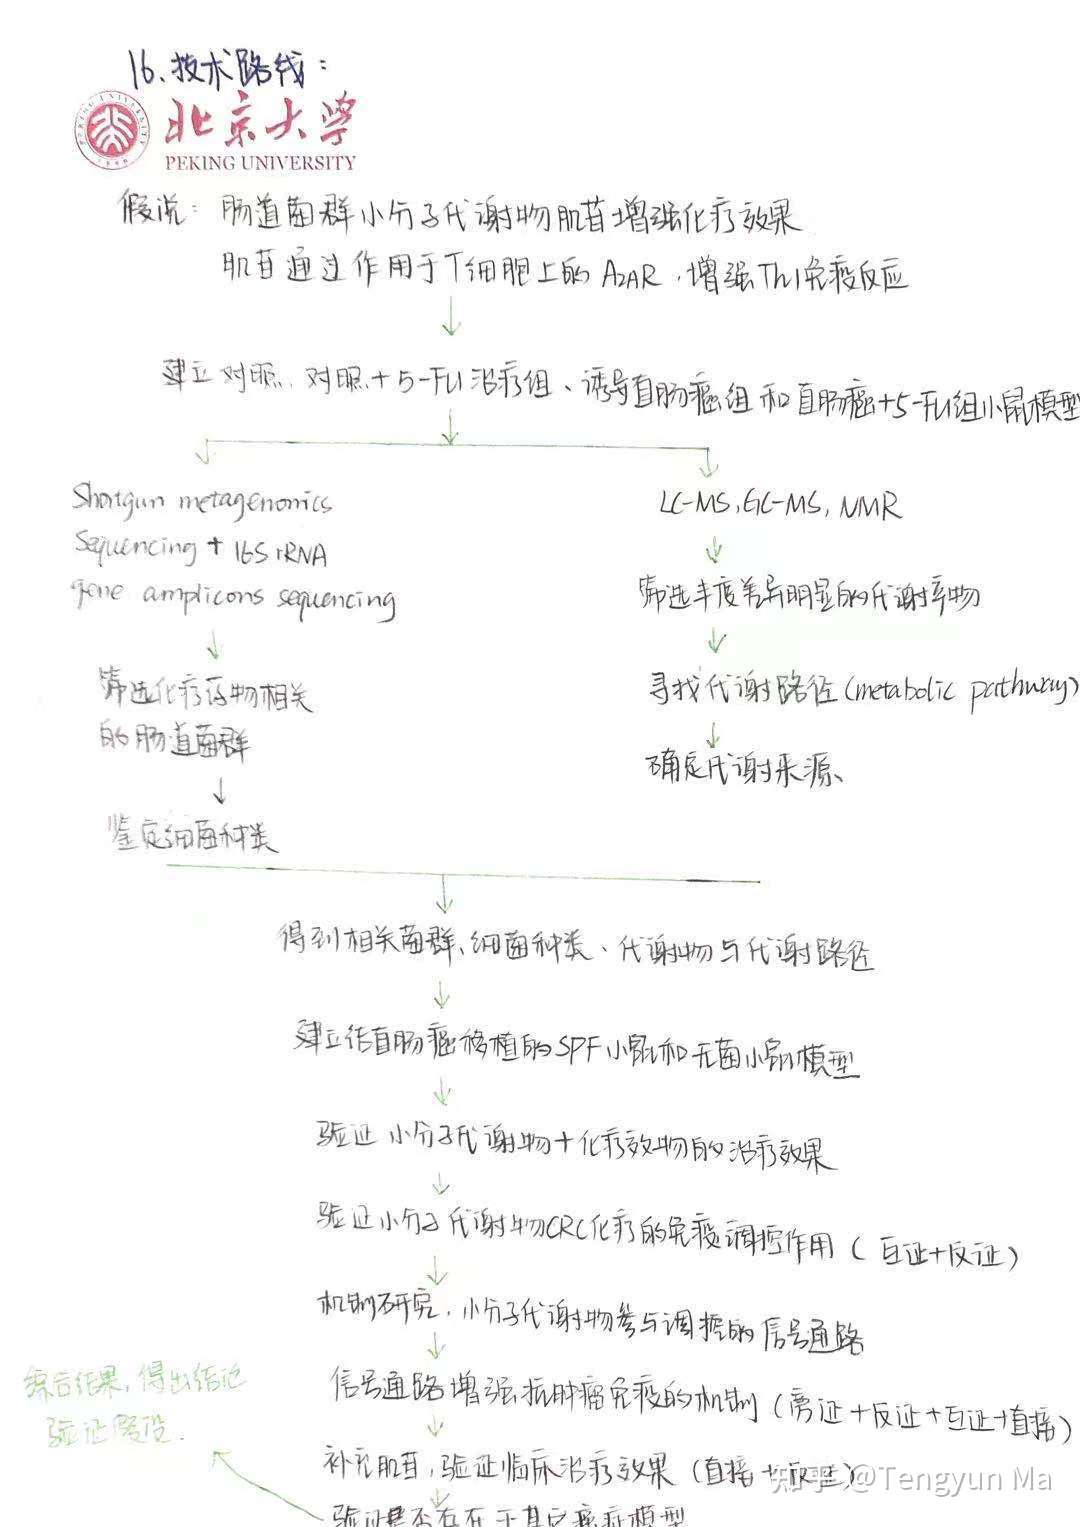 16、技术路线：
北京大学
PEKING UNIVERSITY
假说：肠道菌群小分子代谢物肌苷增强化疗效果
肌苷通过作用于T细胞上的A2AR，增强Th1免疫反应
建立对照、对照+5-FU治疗组、诱导直肠癌组和直肠癌+5-FU组小鼠模型
Shotgun metagenomics
Sequencing + 16S rRNA
gene amplicons sequencing
LC-MS, GC-MS, NMR
筛选丰度差异明显的代谢产物
寻找代谢路径(metabolic pathway)
确定代谢来源、
筛选化疗药物相关
的肠道菌群
鉴定细菌种类
得到相关菌群、细菌种类、代谢物与代谢路径
建立结直肠癌移植的SPF小鼠和无菌小鼠模型
验证小分子代谢物+化疗药物的治疗效果
验证小分子代谢物CRC化疗的免疫调控作用（互证+反证）
机制研究，小分子代谢物参与调控的信号通路
信号通路增强抗肿瘤免疫的机制（旁证+反证+互证+直接）
补充肌苷，验证临床治疗效果（直接+反证）
验证是否存在于其它癌症模型
综合结果，得出结论
验证假设．
知乎 @Tengyun Ma